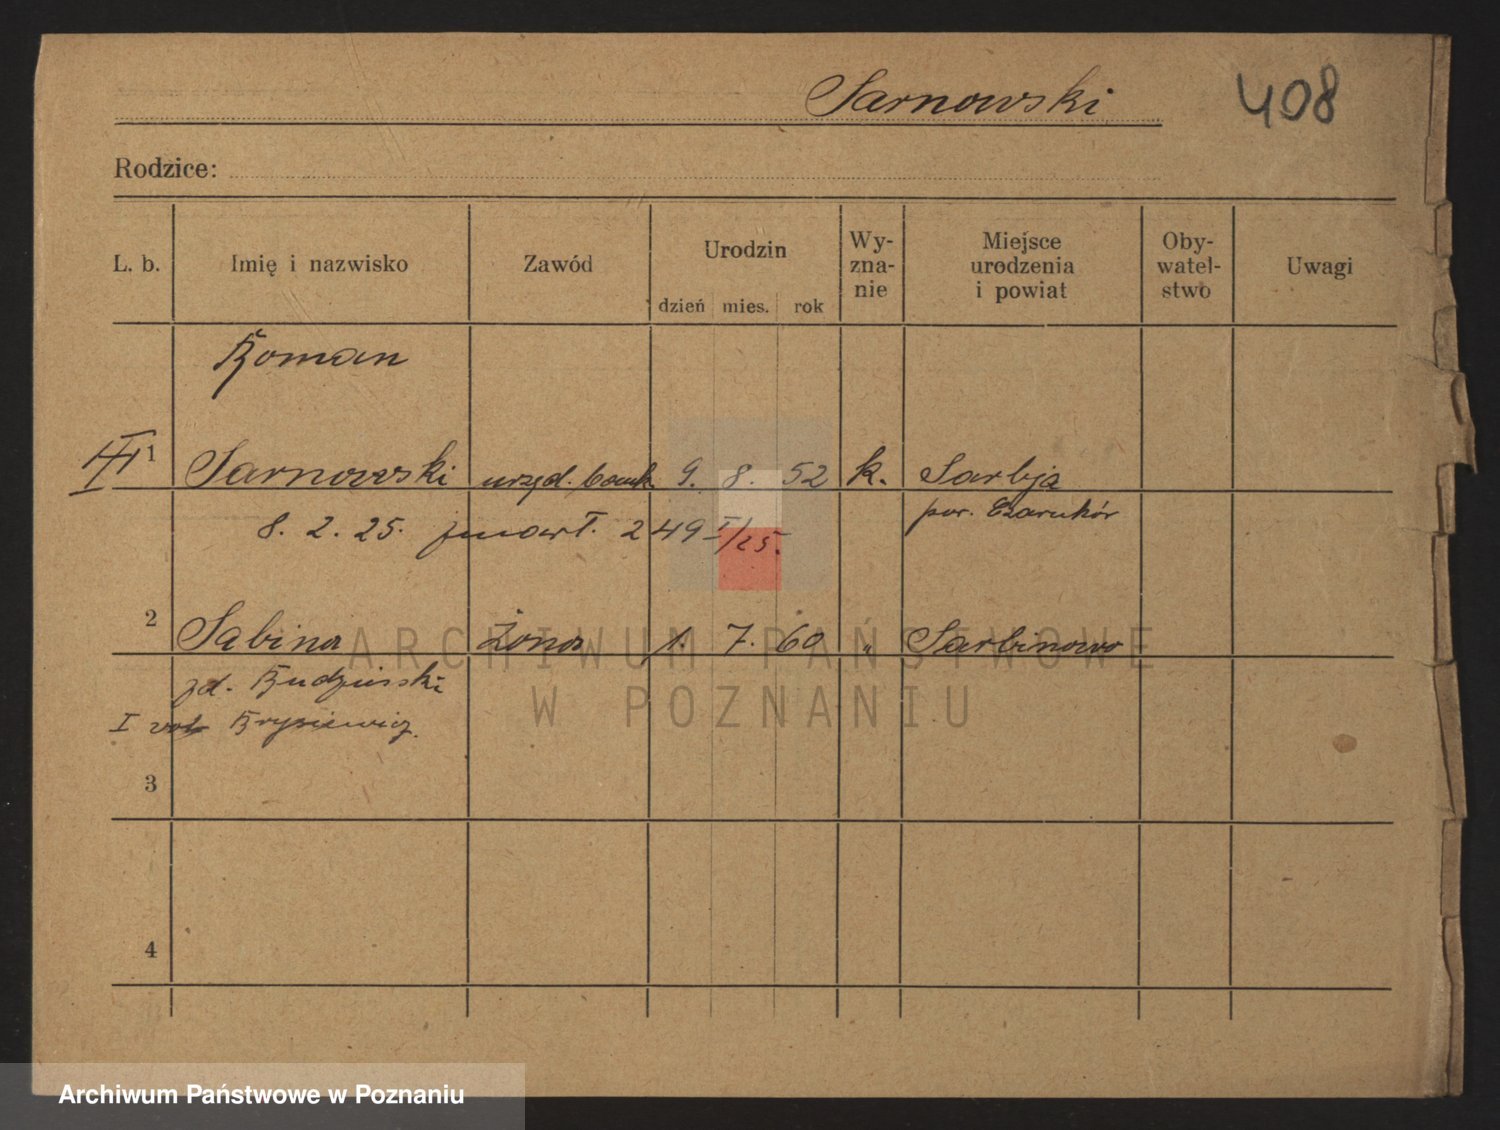 Sarnowski
408
Rodzice:
L. b. Imię i nazwisko Zawód Urodzin dzień mies. rok Wy-zna-nie Miejsce urodzenia i powiat Oby-watel-stwo Uwagi
Roman
1 Sarnowski urzęd. bank. 9. 8. 52 k. Sarbja
pow. Czarnków
8. 2. 25. zmarł. 249 I/25.
2 Sabina Żona 1. 7. 60 " Sarbinowo
zd. Budziński
I voto
3
4
ARCHIWUM PAŃSTWOWE
W POZNANIU
Archiwum Państwowe w Poznaniu